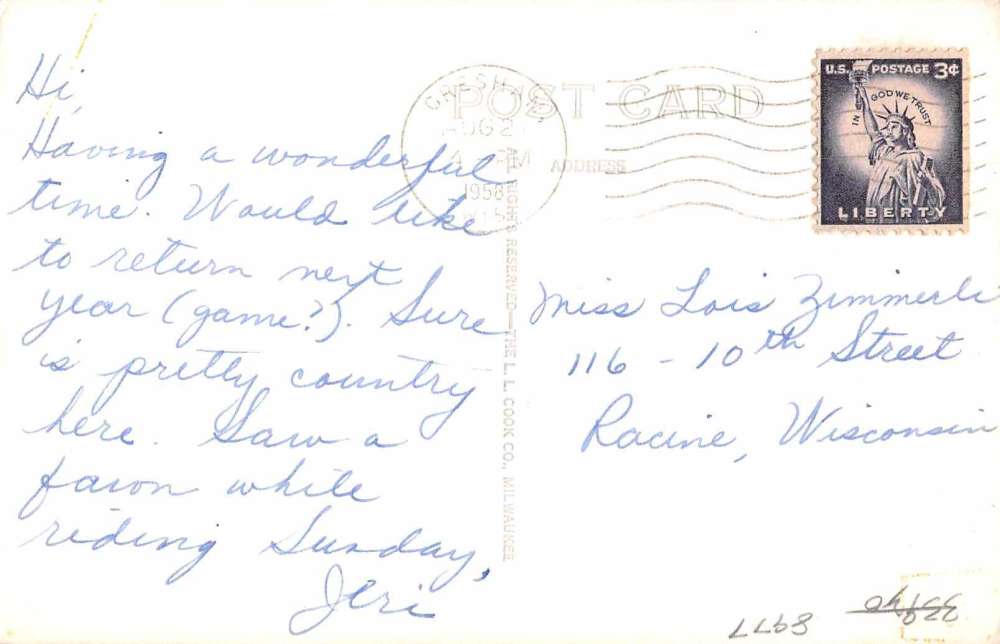 Hi,
Having a wonderful
time. Would like
to return next
year (game?). Sure
is pretty country
here. Saw a
fawn while
riding Sunday,
Jeri
POST CARD
ADDRESS
GRESHAM,
AUG 2
PM
1958
WIS
U.S. POSTAGE 3¢
IN GOD WE TRUST
LIBERTY
Miss Lois Zimmerli
116 - 10th Street
Racine, Wisconsin
ALL RIGHTS RESERVED—THE L. L. COOK CO., MILWAUKEE